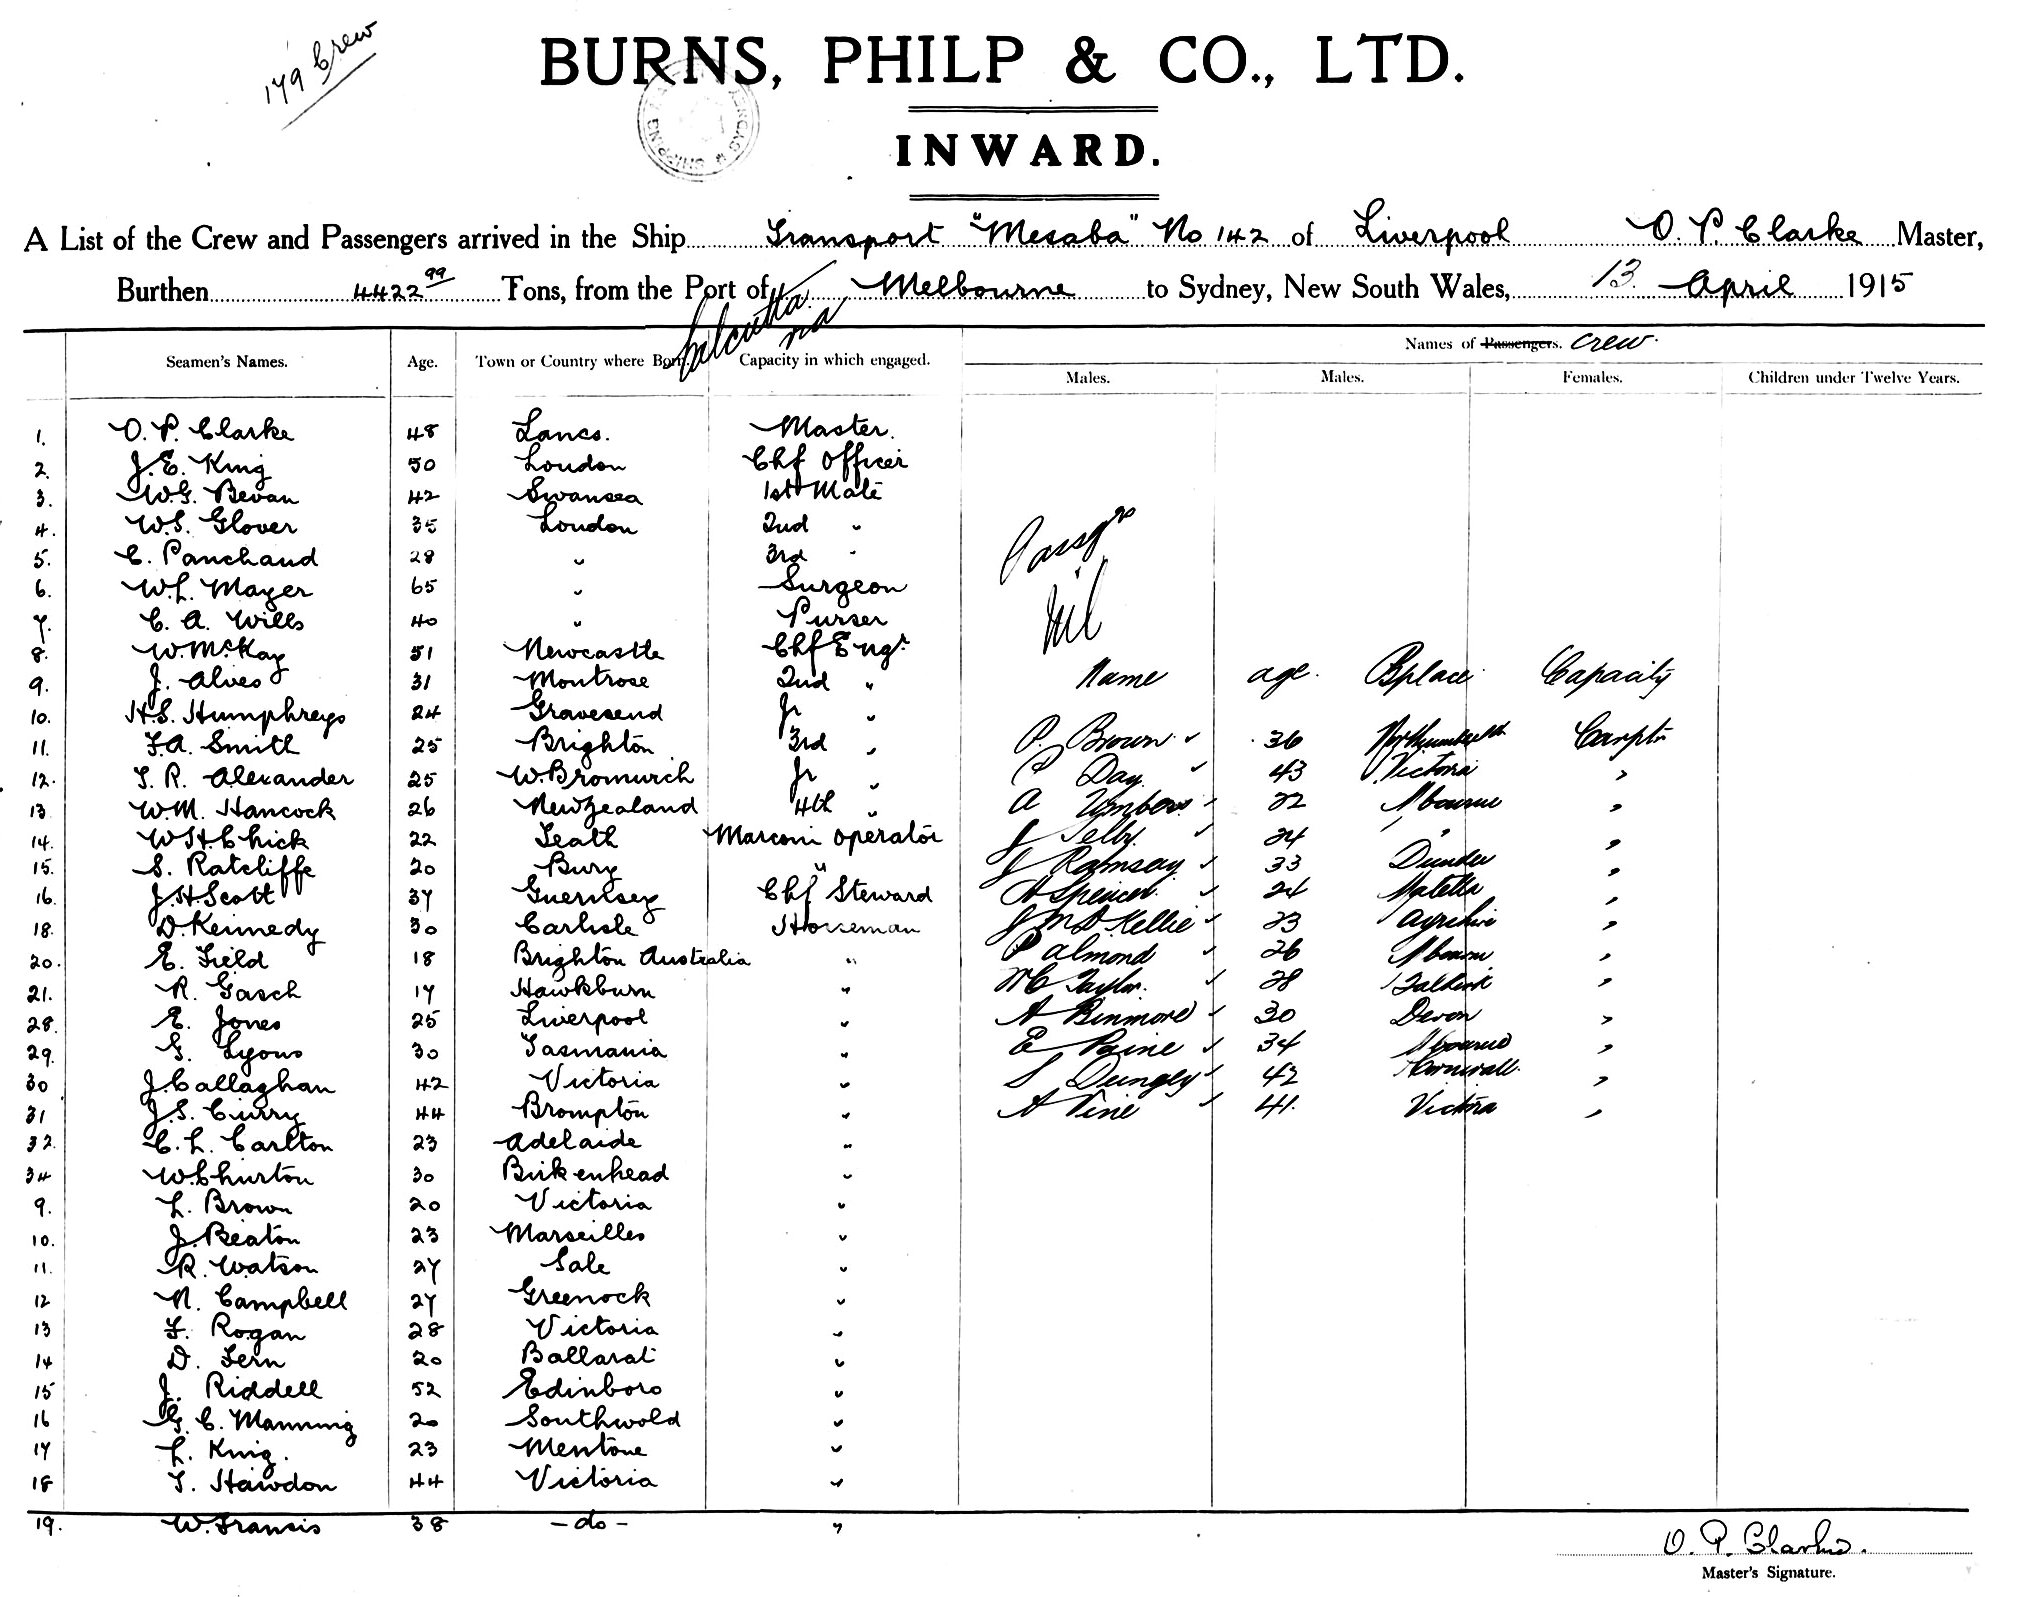 179 Crew
BURNS, PHILP & CO., LTD.
INWARD.
A List of the Crew and Passengers arrived in the Ship Transport "Mesaba" No 142 of Liverpool O. P. Clarke Master,
Burthen 4422 99 Tons, from the Port of Calcutta via Melbourne to Sydney, New South Wales, 13 April 1915
Names of Passengers. Crew.
Seamen's Names. Age. Town or Country where Born. Capacity in which engaged. Males. Males. Females. Children under Twelve Years.
1. O. P. Clarke 48 Lancs. Master.
2. J. E. King 50 London Chf Officer
3. W.G. Bevan 42 Swansea 1st Mate
4. W.S. Glover 35 London 2nd "
5. C. Panchaud 28 " 3rd "
6. W.L. Mayer 65 " Surgeon
7. C. A. Wills 40 " Purser
8. W. McKay 51 Newcastle Chf Engr
9. J. Alves 31 Montrose 2nd "
10. H.S. Humphreys 24 Gravesend Jr "
11. F.A. Smith 25 Brighton 3rd "
12. T. R. Alexander 25 W. Bromwich Jr "
13 W.M. Hancock 26 New Zealand 4th "
14. W.H. Chick 22 Leath Marconi Operator
15. S. Ratcliffe 20 Bury "
16. J.H. Scott 37 Guernsey Chf Steward
18. D. Kennedy 30 Carlisle Horseman
20. E. Field 18 Brighton Australia "
21. R. Gasch 17 Hawkburn "
28. E. Jones 25 Liverpool "
29. G. Lyons 30 Tasmania "
30 J. Callaghan 42 Victoria "
31 J.S. Curry 44 Brompton "
32. C. L. Carlton 23 Adelaide "
34 W. Churton 30 Birkenhead "
9. L. Brown 20 Victoria "
10. J. Beaton 23 Marseilles "
11. R. Watson 27 Sale "
12 N. Campbell 27 Greenock "
13 F. Rogan 28 Victoria "
14 D. Fern 20 Ballarat "
15 J. Riddell 52 Edinboro "
16 G. C. Manning 20 Southwold "
17 L. King. 23 Mentone "
18 T. Hawdon 44 Victoria "
19. W. Francis 38 - do - "
Passgrs
Nil
Name age. Bplace Capacity
P. Brown 36 Carptr
P Day 43 Victoria "
A 22 Mbourne "
J Selby 24 " "
J Ramsay 33 Dundee "
A Spencer 24 "
J McD Kellie 23 Ayrshire "
P Almond 26 Mbourne "
W C Taylor 28 Falkirk "
A Binmore 30 Devon "
E Paine 34 Mbourne "
S Dungey 42 Cornwall "
A Vine 41. Victoria "
O. P. Clarke.
Master's Signature.